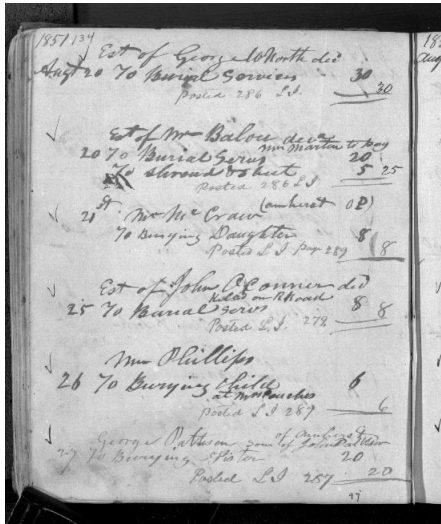 1851 134
Est of George W North dcd
Augt 20 To Burial Services 30
Posted 286 L I. 30
Est of Mrs Balou decd
Mrs Martin to pay
20 To Burial Servs 20
To Shroud & Sheet 5 25
Posted 286 L I
21st Mr McCraw (amherst OP)
To Burying Daughter 8
Posted L I page 289 8
Est of John O'Conner dcd
Killed on R Road
25 To Burial Servs 8 8
Posted L I. 278
Mrs Phillips
26 To Burying Child 6
at Mrs
Posted L I 287 6
George Patteson son of John Patteson
of Amherst
27 To Burying Sister 20
Posted L I 287 20